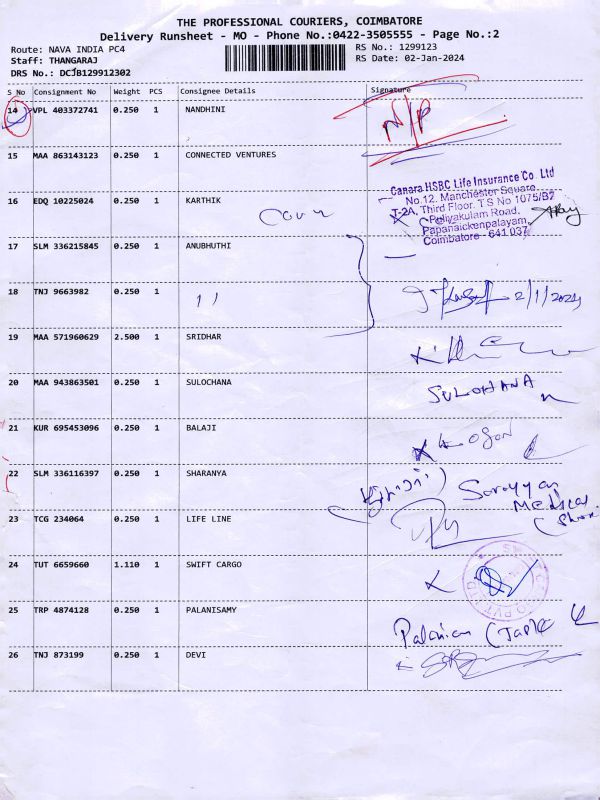 THE PROFESSIONAL COURIERS, COIMBATORE
Delivery Runsheet - MO - Phone No.:0422-3505555 - Page No.:2
Route: NAVA INDIA PC4
RS No.: 1299123
Staff: THANGARAJ
RS Date: 02-Jan-2024
DRS No.: DCJB129912302
S No Consignment No Weight PCS Consignee Details Signature
14 VPL 403372741 0.250 1 NANDHINI N/P
15 MAA 863143123 0.250 1 CONNECTED VENTURES
Canara HSBC Life Insurance Co. Ltd
No.12, Manchester Square
T-2A, Third Floor. T S No 1075/B2
Puliyakulam Road,
Papanaickenpalayam,
Coimbatore - 641 037
16 EDQ 10225024 0.250 1 KARTHIK
17 SLM 336215845 0.250 1 ANUBHUTHI
18 TNJ 9663982 0.250 1 2/1/2024
19 MAA 571960629 2.500 1 SRIDHAR
20 MAA 943863501 0.250 1 SULOCHANA SULOHANA
21 KUR 695453096 0.250 1 BALAJI
22 SLM 336116397 0.250 1 SHARANYA
Medical
23 TCG 234064 0.250 1 LIFE LINE
24 TUT 6659660 1.110 1 SWIFT CARGO
25 TRP 4874128 0.250 1 PALANISAMY
26 TNJ 873199 0.250 1 DEVI